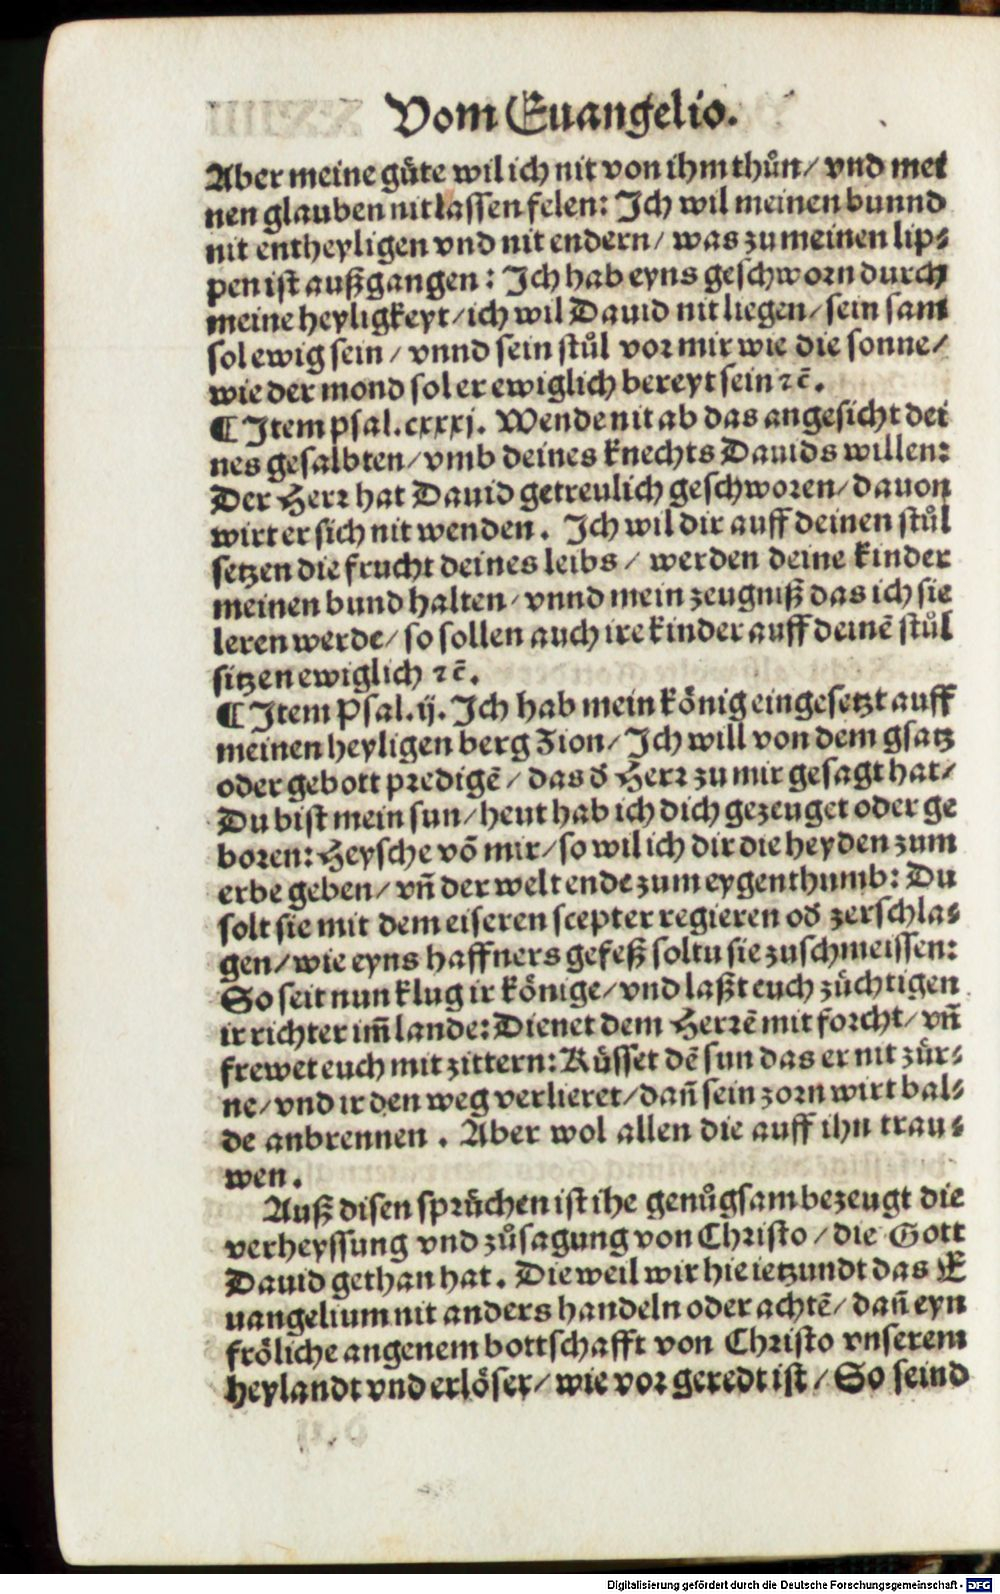 Vom Euangelio.
Aber meine güte wil ich nit von ihm thůn/ vnd mei
nen glauben nit lassen felen: Ich wil meinen bunnd
nit entheyligen vnd nit endern/ was zu meinen lip⸗
pen ist außgangen: Ich hab eyns geschworn durch
meine heyligkeyt/ ich wil Dauid nit liegen/ sein sam
sol ewig sein / vnnd sein stůl vor mir wie die sonne/
wie der mond sol er ewiglich bereyt sein ⁊c̃.
¶ Item psal.cxxxj. Wende nit ab das angesicht dei
nes gesalbten/ vmb deines knechts Dauids willen:
Der Herr hat Dauid getreulich geschworen/ dauon
wirt er sich nit wenden. Ich wil dir auff deinen stůl
setzen die frucht deines leibs / werden deine kinder
meinen bund halten/ vnnd mein zeugniß das ich sie
leren werde/ so sollen auch ire kinder auff deinẽ stůl
sitzen ewiglich ⁊c̃.
¶ Item Psal.ij. Ich hab mein könig eingesetzt auff
meinen heyligen berg Zion/ Ich will von dem gsatz
oder gebott predigẽ/ das d̕ Herr zu mir gesagt hat/
Du bist mein sun/ heut hab ich dich gezeuget oder ge
boren: Heysche võ mir/ so wil ich dir die heyden zum
erbe geben/ vñ der welt ende zum eygenthumb: Du
solt sie mit dem eiseren scepter regieren od̕ zerschla⸗
gen/ wie eyns haffners gefeß soltu sie zuschmeissen:
So seit nun klug ir könige/ vnd laßt euch züchtigen
ir richter im̃ lande: Dienet dem Herrẽ mit forcht/ vñ
frewet euch mit zittern: Küsset dẽ sun das er nit zür⸗
ne/ vnd ir den weg verlieret/ dañ sein zorn wirt bal⸗
de anbrennen . Aber wol allen die auff ihn trau⸗
wen.
Auß disen sprüchen ist ihe genůgsam bezeugt die
verheyssung vnd zůsagung von Christo / die Gott
Dauid gethan hat. Die weil wir hie ietzundt das E
uangelium nit anders handeln oder achtẽ/ dañ eyn
fröliche angenem bottschafft von Christo vnserem
heylandt vnd erlöser/ wie vor geredt ist / So seind
Digitalisierung gefördert durch die Deutsche Forschungsgemeinschaft - DFG